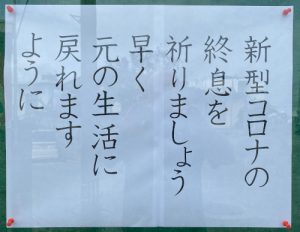 新型コロナの
終息を
祈りましょう
早く
元の生活に
戻れます
ように